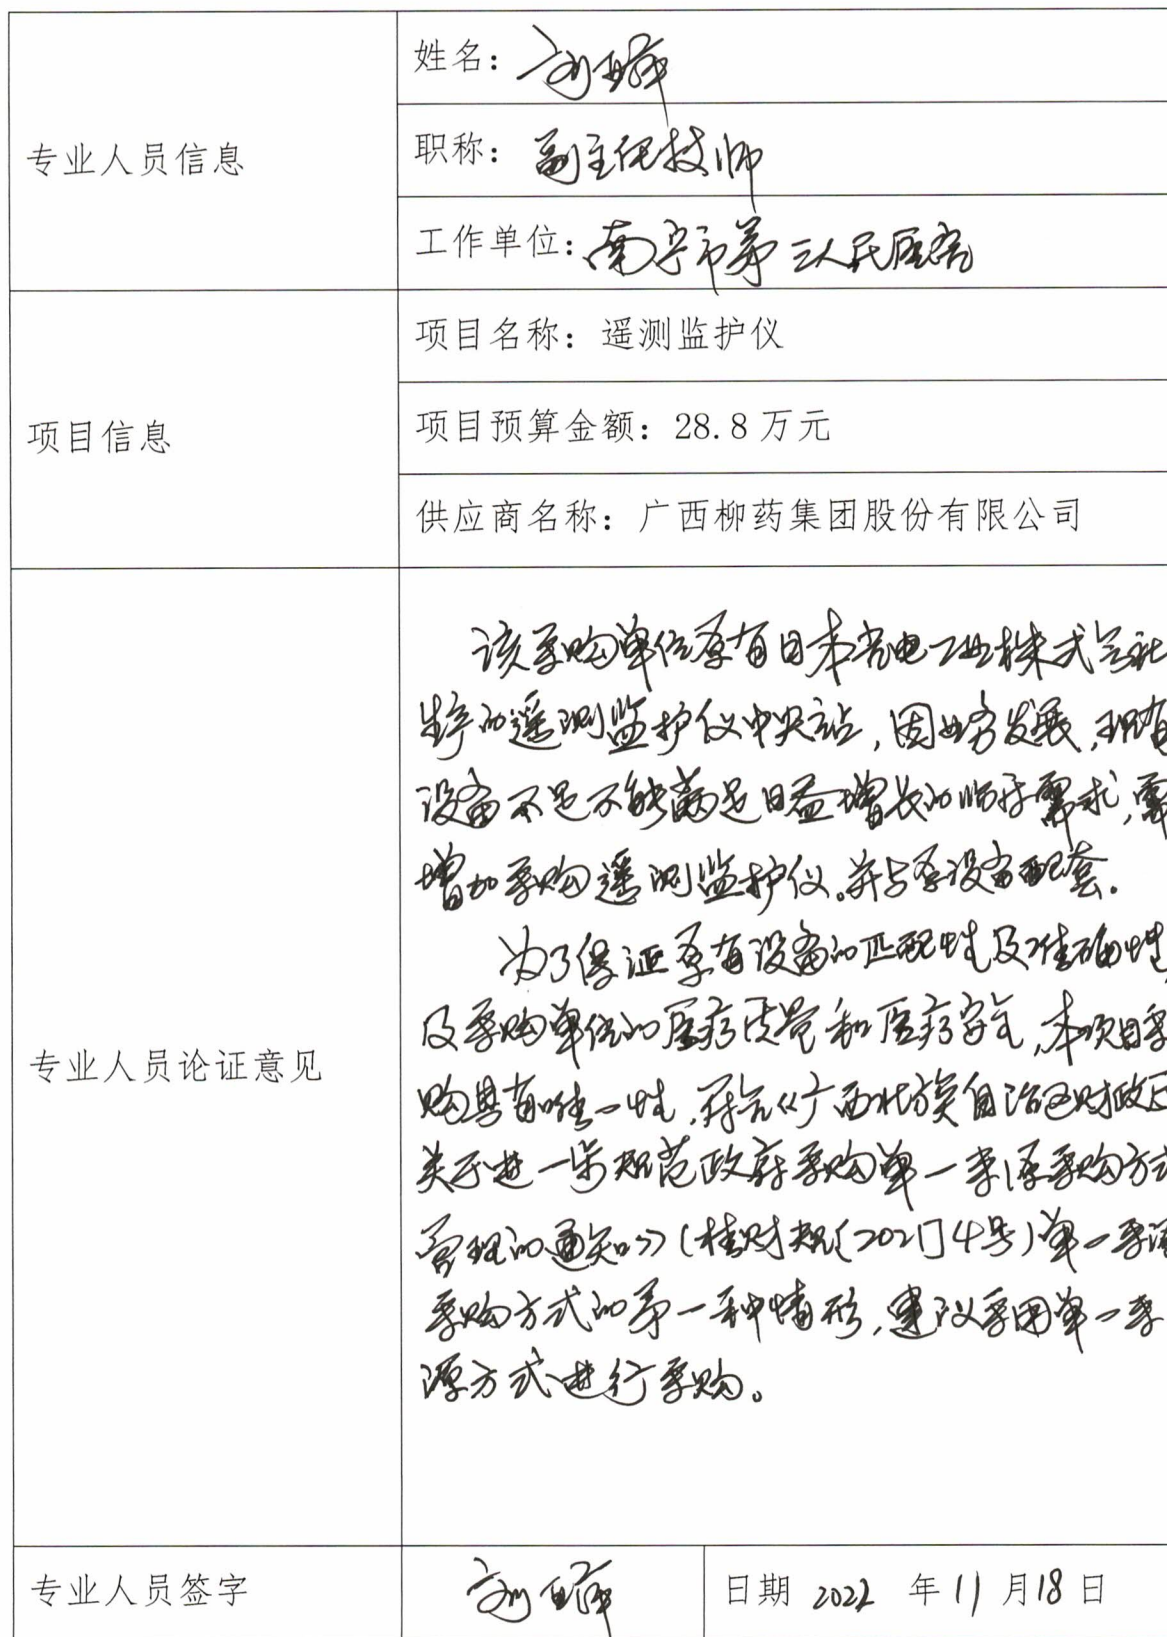 姓名：刘
专业人员信息
职称：副主任技师
工作单位：南宁市第三人民医院
项目名称：遥测监护仪
项目信息
项目预算金额：28.8万元
供应商名称：广西柳药集团股份有限公司
该采购单位原有日本光电工业株式会社
生产的遥测监护仪中央站，因业务发展，现有
设备不足不能满足日益增长的临床需求，需
增加采购遥测监护仪。并与原设备配套。
为了保证原有设备的匹配性及准确性，
及采购单位的医疗质量和医疗安全，本项目采
专业人员论证意见
购具有唯一性，符合《广西壮族自治区财政厅
关于进一步规范政府采购单一来源采购方式
管理的通知》（桂财规〔2021〕4号）单一来源
采购方式的第一种情形，建议采用单一来
源方式进行采购。
专业人员签字 刘 日期 2022 年 11 月 18 日